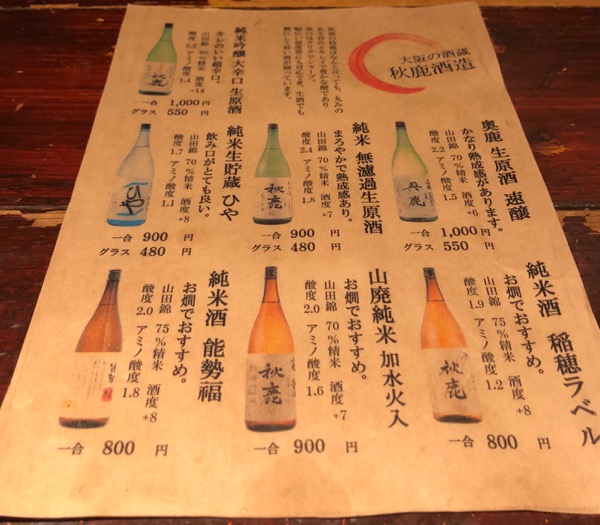 大阪の酒蔵
秋鹿酒造
純米吟醸 大辛口 生原酒
キレのいい辛口。
山田錦 60%精米 酒度+14
酸度2.2 アミノ酸度1.4
秋鹿
一合 1,000円
グラス 550円
奥鹿 生原酒 速醸
かなり熟成感があります。
山田錦 70%精米 酒度+6
酸度2.2 アミノ酸度1.5
奥鹿
一合 1,000円
グラス 550円
純米 無濾過生原酒
まろやかで熟成感あり。
山田錦 70%精米 酒度+7
酸度2.4 アミノ酸度1.8
秋鹿
一合 900円
グラス 480円
純米生貯蔵 ひや
飲み口がとても良い。
山田錦 70%精米 酒度+8
酸度1.7 アミノ酸度1.1
ひや
一合 900円
グラス 480円
純米酒 稲穂ラベル
お燗でおすすめ。
山田錦 75%精米 酒度+8
酸度1.9 アミノ酸度1.2
秋鹿
一合 800円
山廃純米 加水火入
お燗でおすすめ。
山田錦 70%精米 酒度+7
酸度2.0 アミノ酸度1.6
秋鹿
一合 900円
純米酒 能勢福
お燗でおすすめ。
山田錦 75%精米 酒度+8
酸度2.0 アミノ酸度1.8
一合 800円